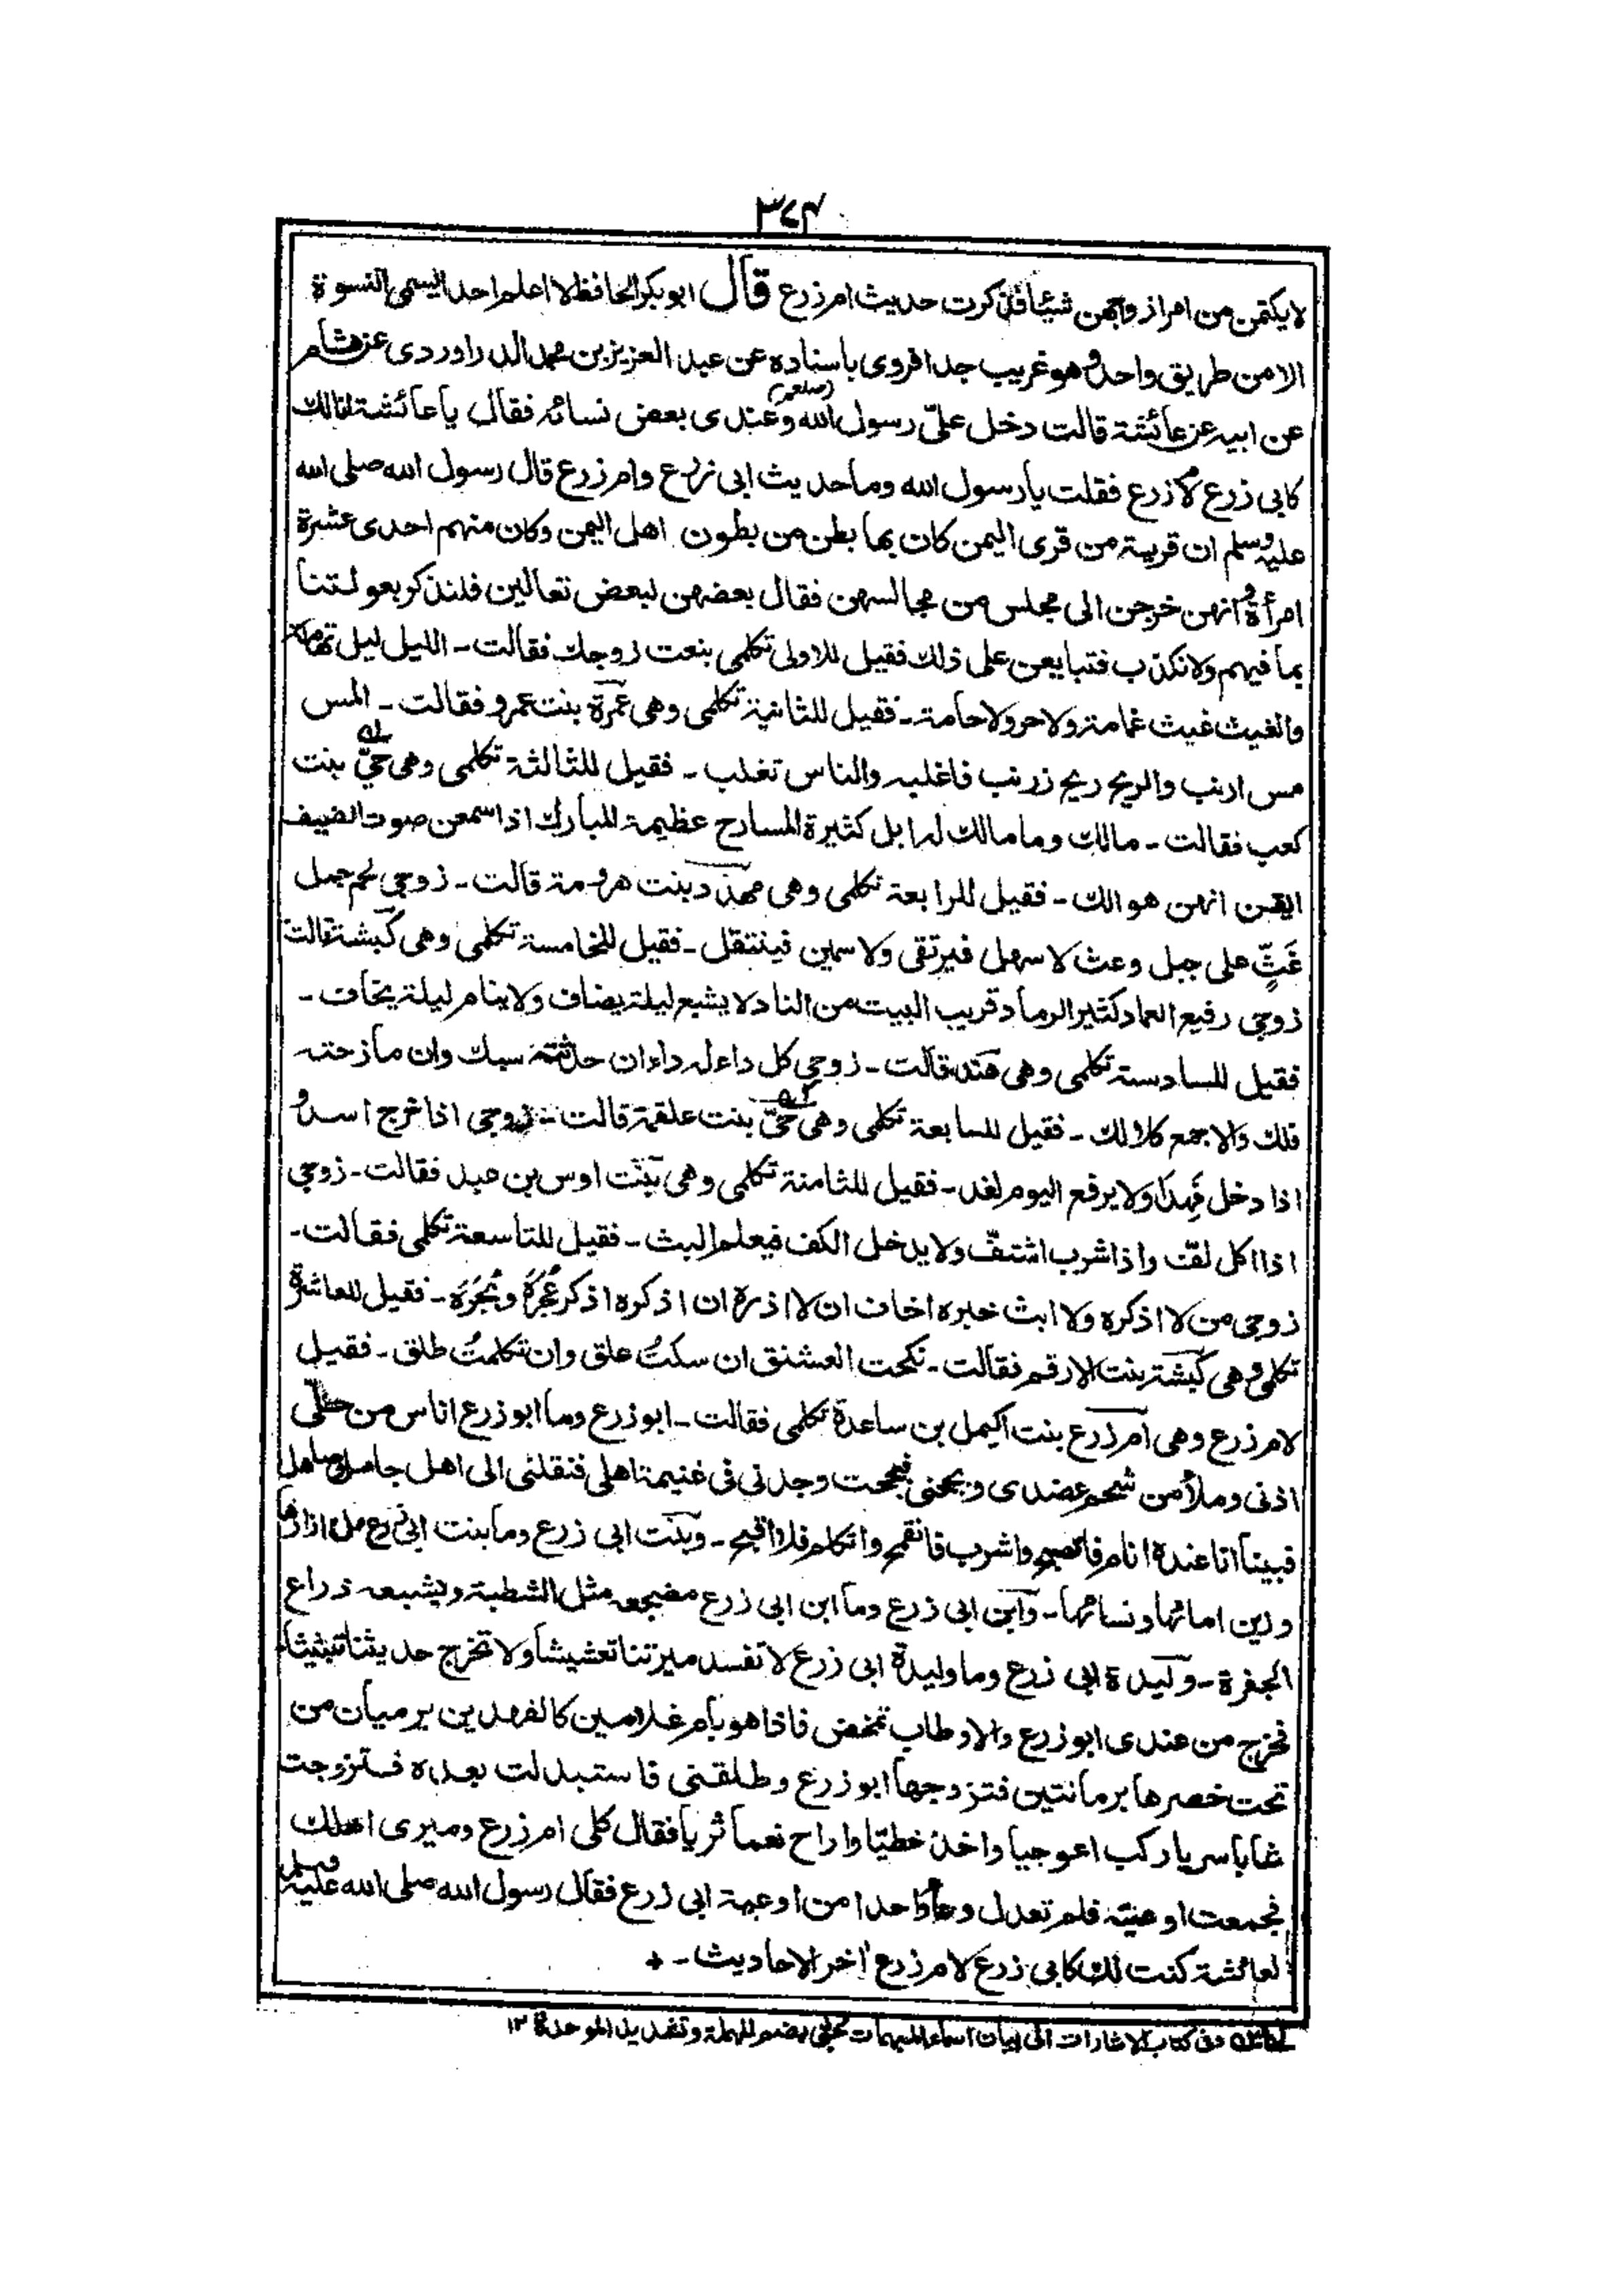 ٣٧٤
لا يكتمن من امر ازواجهن شيئا فذكرت حديث ام زرع قال ابوبكر الحافظ لا اعلم احدا يسمى النسوة
الا من طريق واحد وهو غريب جدا فروى باسناده عن عبد العزيز بن محمد الدراوردى عن هشام
عن ابيه عن عائشة قالت دخل علىّ رسول الله (صلعم) وعندى بعض نسائه فقال يا عائشة انا لك
كابى زرع لام زرع فقلت يا رسول الله وما حديث ابى زرع وام زرع قال رسول الله صلى الله
عليه وسلم ان قرية من قرى اليمن كان بها بطن من بطون اهل اليمن وكان منهم احدى عشرة
امرأة وانهن خرجن الى مجلس من مجالسهن فقال بعضهن لبعض تعالين فلنذكر بعولتنا
بما فيهم ولا نكذب فتبايعن على ذلك فقيل للاولى تكلمى بنعت زوجك فقالت ـ الليل ليل تهامة
والغيث غيث غمامة ولا حر ولا حامة ـ فقيل للثانية تكلمى وهى عمرة بنت عمرو فقالت ـ المس
مس ارنب والريح ريح زرنب فاغلبه والناس تغلب ـ فقيل للثالثة تكلمى وهى حبّيٰ بنت
كعب فقالت ـ مالك وما مالك له ابل كثيرة المسارح عظيمة المبارك اذا سمعن صوت الضيف
ايقن انهن هوالك ـ فقيل للرابعة تكلمى وهى مهدد بنت هرومة قالت ـ زوجى لحم جمل
غَثٍّ على جبل وعث لا سهل فيرتقى ولا سمين فينتقل ـ فقيل للخامسة تكلمى وهى كبشة قالت
زوجى رفيع العماد كثير الرماد قريب البيت من الناد لا يشبع ليلة يضاف ولا ينام ليلة يخاف ـ
فقيل للسادسة تكلمى وهى هند قالت ـ زوجى كل داء له داء ان حدثته سبك وان مازحته
فلك والا جمع كلا لك ـ فقيل للسابعة تكلمى وهى حبّى بنت علقمة قالت ـ زوجى اذا خرج اسد و
اذا دخل فَهِد ولا يرفع اليوم لغد ـ فقيل للثامنة تكلمى وهى بنت اوس بن عبد فقالت ـ زوجى
اذا اكل لفّ واذا شرب اشتفّ ولا يدخل الكف فيعلم البث ـ فقيل للتاسعة تكلمى فقالت ـ
زوجى من لا اذكره ولا ابث خبره اخاف ان لا اذره ان اذكره اذكر عُجَرَه وبُجَرَه ـ فقيل للعاشرة
تكلمى وهى كبشة بنت الارقم فقالت ـ نكحت العشنق ان سكتُ علق وان تكلمتُ طلق ـ فقيل
لام زرع وهى ام زرع بنت اكيمل بن ساعدة تكلمى فقالت ـ ابو زرع وما ابو زرع اناس من حلّى
اذنى وملأ من شحم عضدى وبجحنى فبجحت وجدنى فى غنيمة اهلى فنقلنى الى اهل جامل وصاهل
فبينا انا عنده انام فاتصبح واشرب فاتقمح واتكلم فلا اقبح ـ وبنت ابى زرع وما بنت ابى زرع مل ازارها
وزين امائها ونسائها ـ وابن ابى زرع وما ابن ابى زرع مضجعه مثل الشطبة ويشبعه ذراع
الجفرة ـ وليدة ابى زرع وما وليدة ابى زرع لا تفسد ميرتنا تعشيشا ولا تخرج حديثنا تبثيثا
فخرج من عندى ابو زرع والاوطاب تمخض فاذا هو بام غلامين كالفهدين يرميان من
تحت خصرها برمانتين فتزوجها ابو زرع وطلقنى فاستبدلت بعده فتزوجت
شابا سريا ركب اعوجيا واخذ خطيّا واراح نعما ثريا فقال كلى ام زرع وميرى اهلك
فجمعت اوعيته فلم تعدل وعاء واحدا من اوعية ابى زرع فقال رسول الله صلى الله عليه وسلم
لعائشة كنت لك كابى زرع لام زرع اخر الاحاديث ـ +
وفى كتاب الاشارات الى بيان اسماء المبهمات حبى بضم المهملة وتشديد الموحدة ١٢